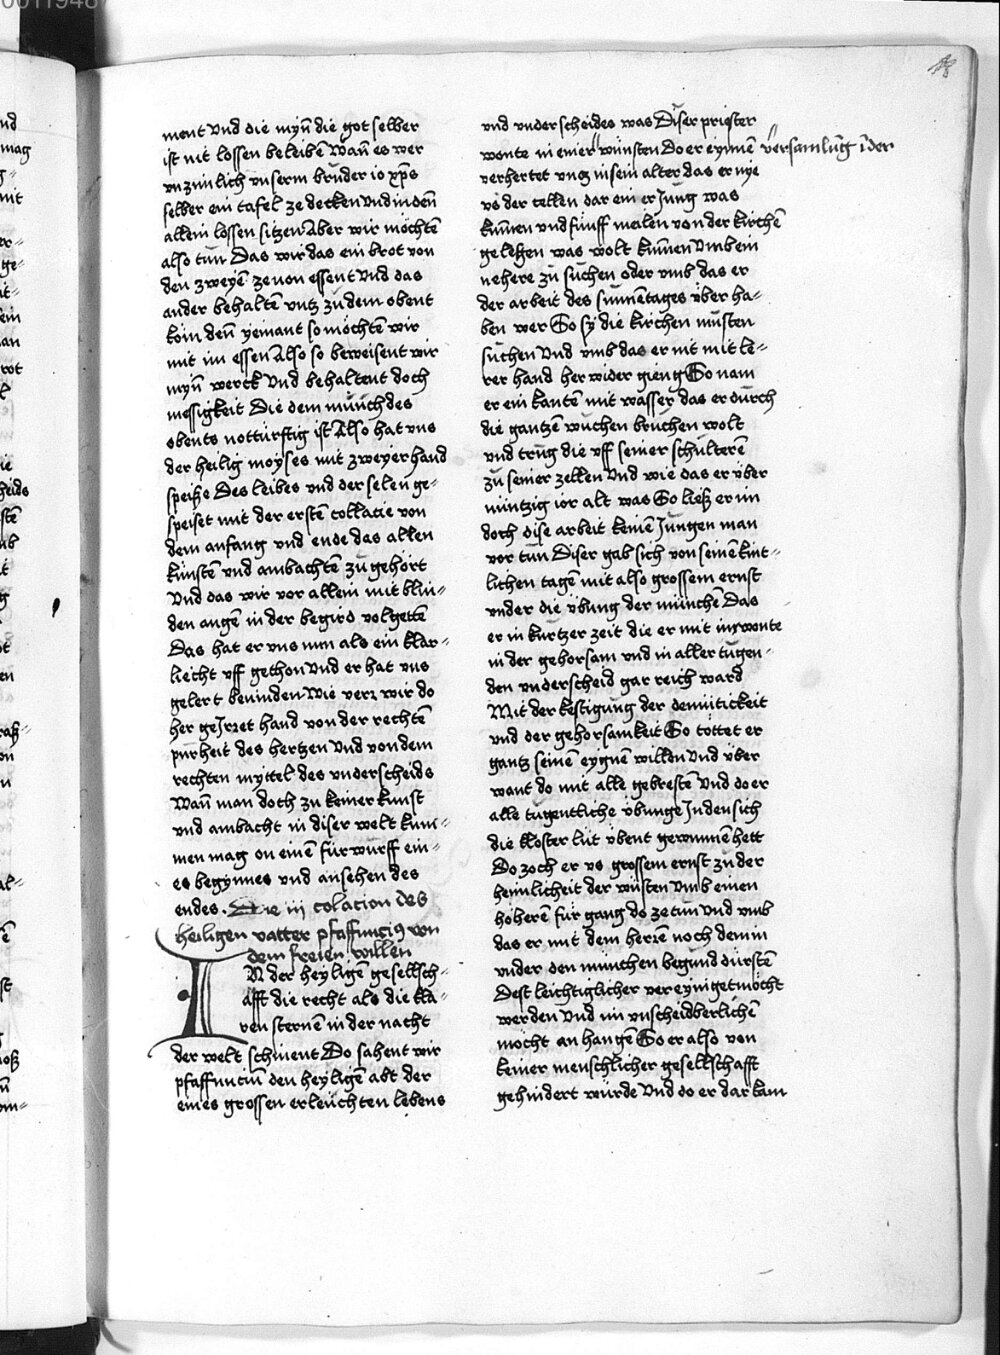 ment Vnd die myn̄ die got selber
ist nit lossen beleibē Wan̄ es wer
vnzimlich vnserm bruder io xp̄s
selber ein tafel ze decken Vnd in den̄
allein lossen sitzen Aber wir möchtē
also tůn Das wir das ein brot von
den zweyē ze non essent Vnd das
ander behaltē vntz zů dem obent
kom den̄ yemant so möchtē wir
mit im essen Also so beweisent wir
myn̄ werck Vnd behaltent doch
messigkeit Die dem münch des
obents notturftig ist Also hat vns
der heilig moyses mit zweyer hand
speiße Des leibes vnd der selen ge-
speiset mit der erstē collacie von
dem anfang vnd ende das allen
künstē vnd ambachtē zů gehört
Vnd das wir vor allein mit blin-
den augē in der begird volgetē
Das hat er vns nun als ein klar-
liecht vff gethon Vnd er hat vns
gelert bevinden Wie verr wir do
her geJrret hand von der rechtē
purheit des hertzen Vnd von dem
rechten myttel des vnderscheids
Wan̄ man doch zu keiner kunst
vnd ambacht in diser welt kum-
men mag on einē fürwurff ein-
es begynnes vnd ansehen des
endes. Die iij colacion des
heiligen vatter pfaffuncius von
dem freien willen
IN der heyligē gesellsch-
afft die recht als die kla-
ren sternē in der nacht
der welt schinent Do sahent wir
pfaffunciū den heyligē abt der
eines grossen erleüchten lebens
18
vnd vnderscheides was Diser priester
wonte in einer wünsten Do er eyinnē versamlūg ī der
verhertet vntz in sein alter das er nye
vs der cellen dar ein er Jung was
kumen vnd fünff meilen von der kirchē
gelegen was wolt kumen Vmb ein
nehere zů suchen oder vmb das er
der arbeit des sunnētages über ha-
ben wer So sy die kirchen müsten
süchen Vnd vmb das er nit mit le-
rer hand her wider gieng So nam
er ein kantē mit wasser das er durch
die gantzē wuchen bruchen wolt
vnd trůg die vff seiner schulterē
zů seiner zellen Vnd wie das er über
nüntzig ior alt was So ließ er im
doch dise arbeit keinē Jungen man
vor tůn Diser gab sich von seinē kint-
lichen tagē mit also grossem ernst
vnder die übung der münchē Das
er in kurtzer zeit die er mit inn wonte
in der gehorsam vnd in aller tugen-
den vnderscheid gar reich ward
Mit der kestigung der demütickeit
vnd der gehorsamkeit So tottet er
gantz seinē eygnē willen Vnd über
want do mit alle gebrestē Vnd do er
alle tugentliche übunge Jn den sich
die kloster lüt übent gewunnē hett
Do zoch er vs grossem ernst zů der
heimlicheit der wüsten Vmb einen
höherē für gang do ze tůn Vnd vmb
das er mit dem herrē noch dem in
vnder den münchen begund dürstē
Dest leichtiglicher vereyniget möcht
werden Vnd im vnscheidberlichē
möcht an hangē So er also von
keiner menschlicher gesellschafft
gehindert würde Vnd do er dar kam